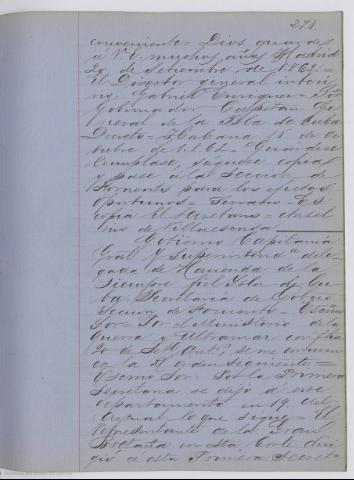 274.
conveniente = Dios guarde
á V.E. muchos años Madrid
20 de Setiembre de 1862 =
El Director general interi
no: Gabriel Enriquez = Sor.
Gobernador Capitan Ge
neral de la Isla de Cuba
Decreto = Habana 15 de Oc
tubre de 1862 = Guardese
cumplase, saquese copia
y pase á la Seccion de
Fomento para los efectos
oportunos = Serrano = Es
copia El Secretario = Ansel
mo de Villaescusa
Gobierno Capitania
Gral y Superintenda. dele
gada de Hacienda de la
Siempre fiel Isla de Cu
ba; Secretaria de Gobno.
Seccion de Fomento = Escmo
Sor = Por el Ministerio de la
Guerra y Ultramar con fha
20 de Set. Ante., se me comuni
ca la Rl orden siguiente =
Escmo Sor: Por la Primera
Secretaria se dijo á este
departamento en 19 del
actual lo que sigue = El
representante de la Gran
Bretaña en esta Corte diri
gió á esta Primera Secret